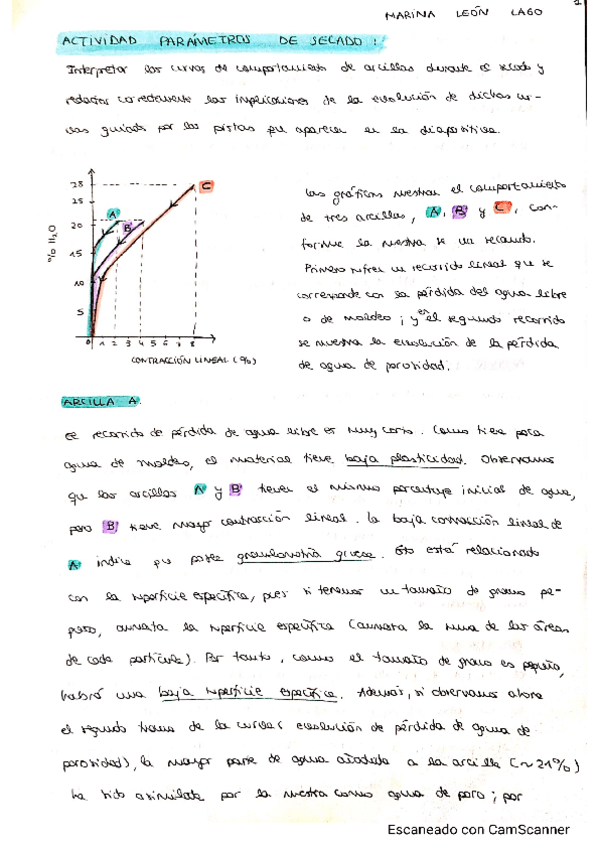 MARINA LEÓN LAGO
1
ACTIVIDAD PARÁMETROS DE SECADO:
Interpretar las curvas de comportamiento de arcillas durante el secado y
redactar correctamente las implicaciones de la evolución de dichas cur-
vas guiado por las pistas que aparecen en la diapositiva.
% H2O
28
25
20
15
10
5
0 1 2 3 4 5 6 7 8
A
B
C
CONTRACCIÓN LINEAL (%)
Las gráficas muestran el comportamiento
de tres arcillas, A, B y C, con-
forme la muestra se va secando.
Primero sufren un recorrido lineal que se
corresponde con la pérdida del agua libre
o de moldeo; y en el segundo recorrido
se muestra la evolución de la pérdida
de agua de porosidad.
ARCILLA A.
El recorrido de pérdida de agua libre es muy corto. Como tiene poca
agua de moldeo, el material tiene baja plasticidad. Observamos
que las arcillas A y B tienen el mismo porcentaje inicial de agua,
pero B tiene mayor contracción lineal. La baja contracción lineal de
A indica que posee granulometría gruesa. Esto está relacionado
con la superficie específica, pues si tenemos un tamaño de grano pe-
queño, aumenta la superficie específica (aumenta la suma de las áreas
de cada partícula). Por tanto, como el tamaño de grano es pequeño,
habrá una baja superficie específica. Además, si observamos ahora
el segundo tramo de la curva (evolución de pérdida de agua de
porosidad), la mayor parte de agua añadida a la arcilla (~21%)
ha sido asimilada por la muestra como agua de poro; por
Escaneado con CamScanner